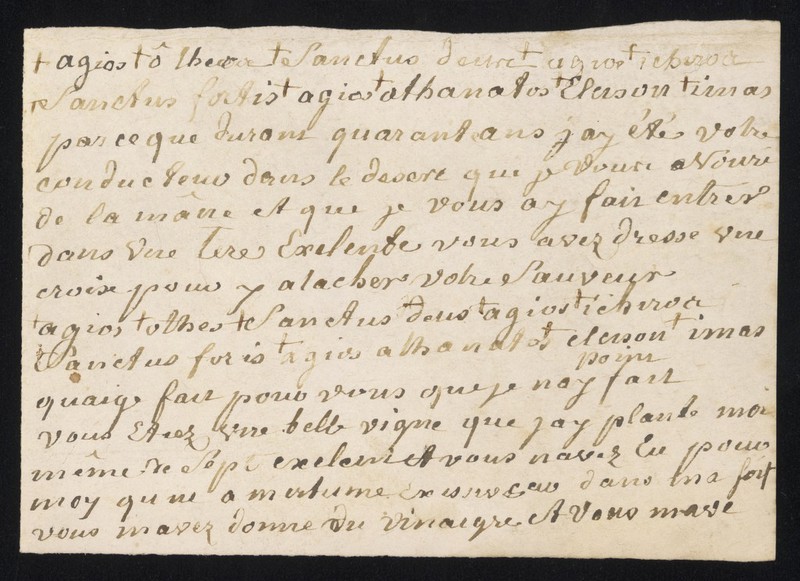 + agios + ô theoa + Sanctus deus + agios + ichiroa
Sanctus fortis + agios + athanatos + Eleison + imas
parceque durant quarant ans j'ay été votre
conducteur dans le desert que je vous a Nouri
de la mâne et que je vous ay fair entrer
dans vne tere Exelente vous avez dresse vne
croix pour y atacher votre Sauveur
+ agios + othes + Sanctus deus + agios + ichiroa
Sanctus foris + agios athanatos + eleison + imas
quaige fait pour vous que je nay point fait
vous Etiez vne belle vigne que jay plante moi
même de Sept exelent et vous navez Eu pour
moy qune amertume dans ma soif
vous mavez donne du vinaigre et vous mave